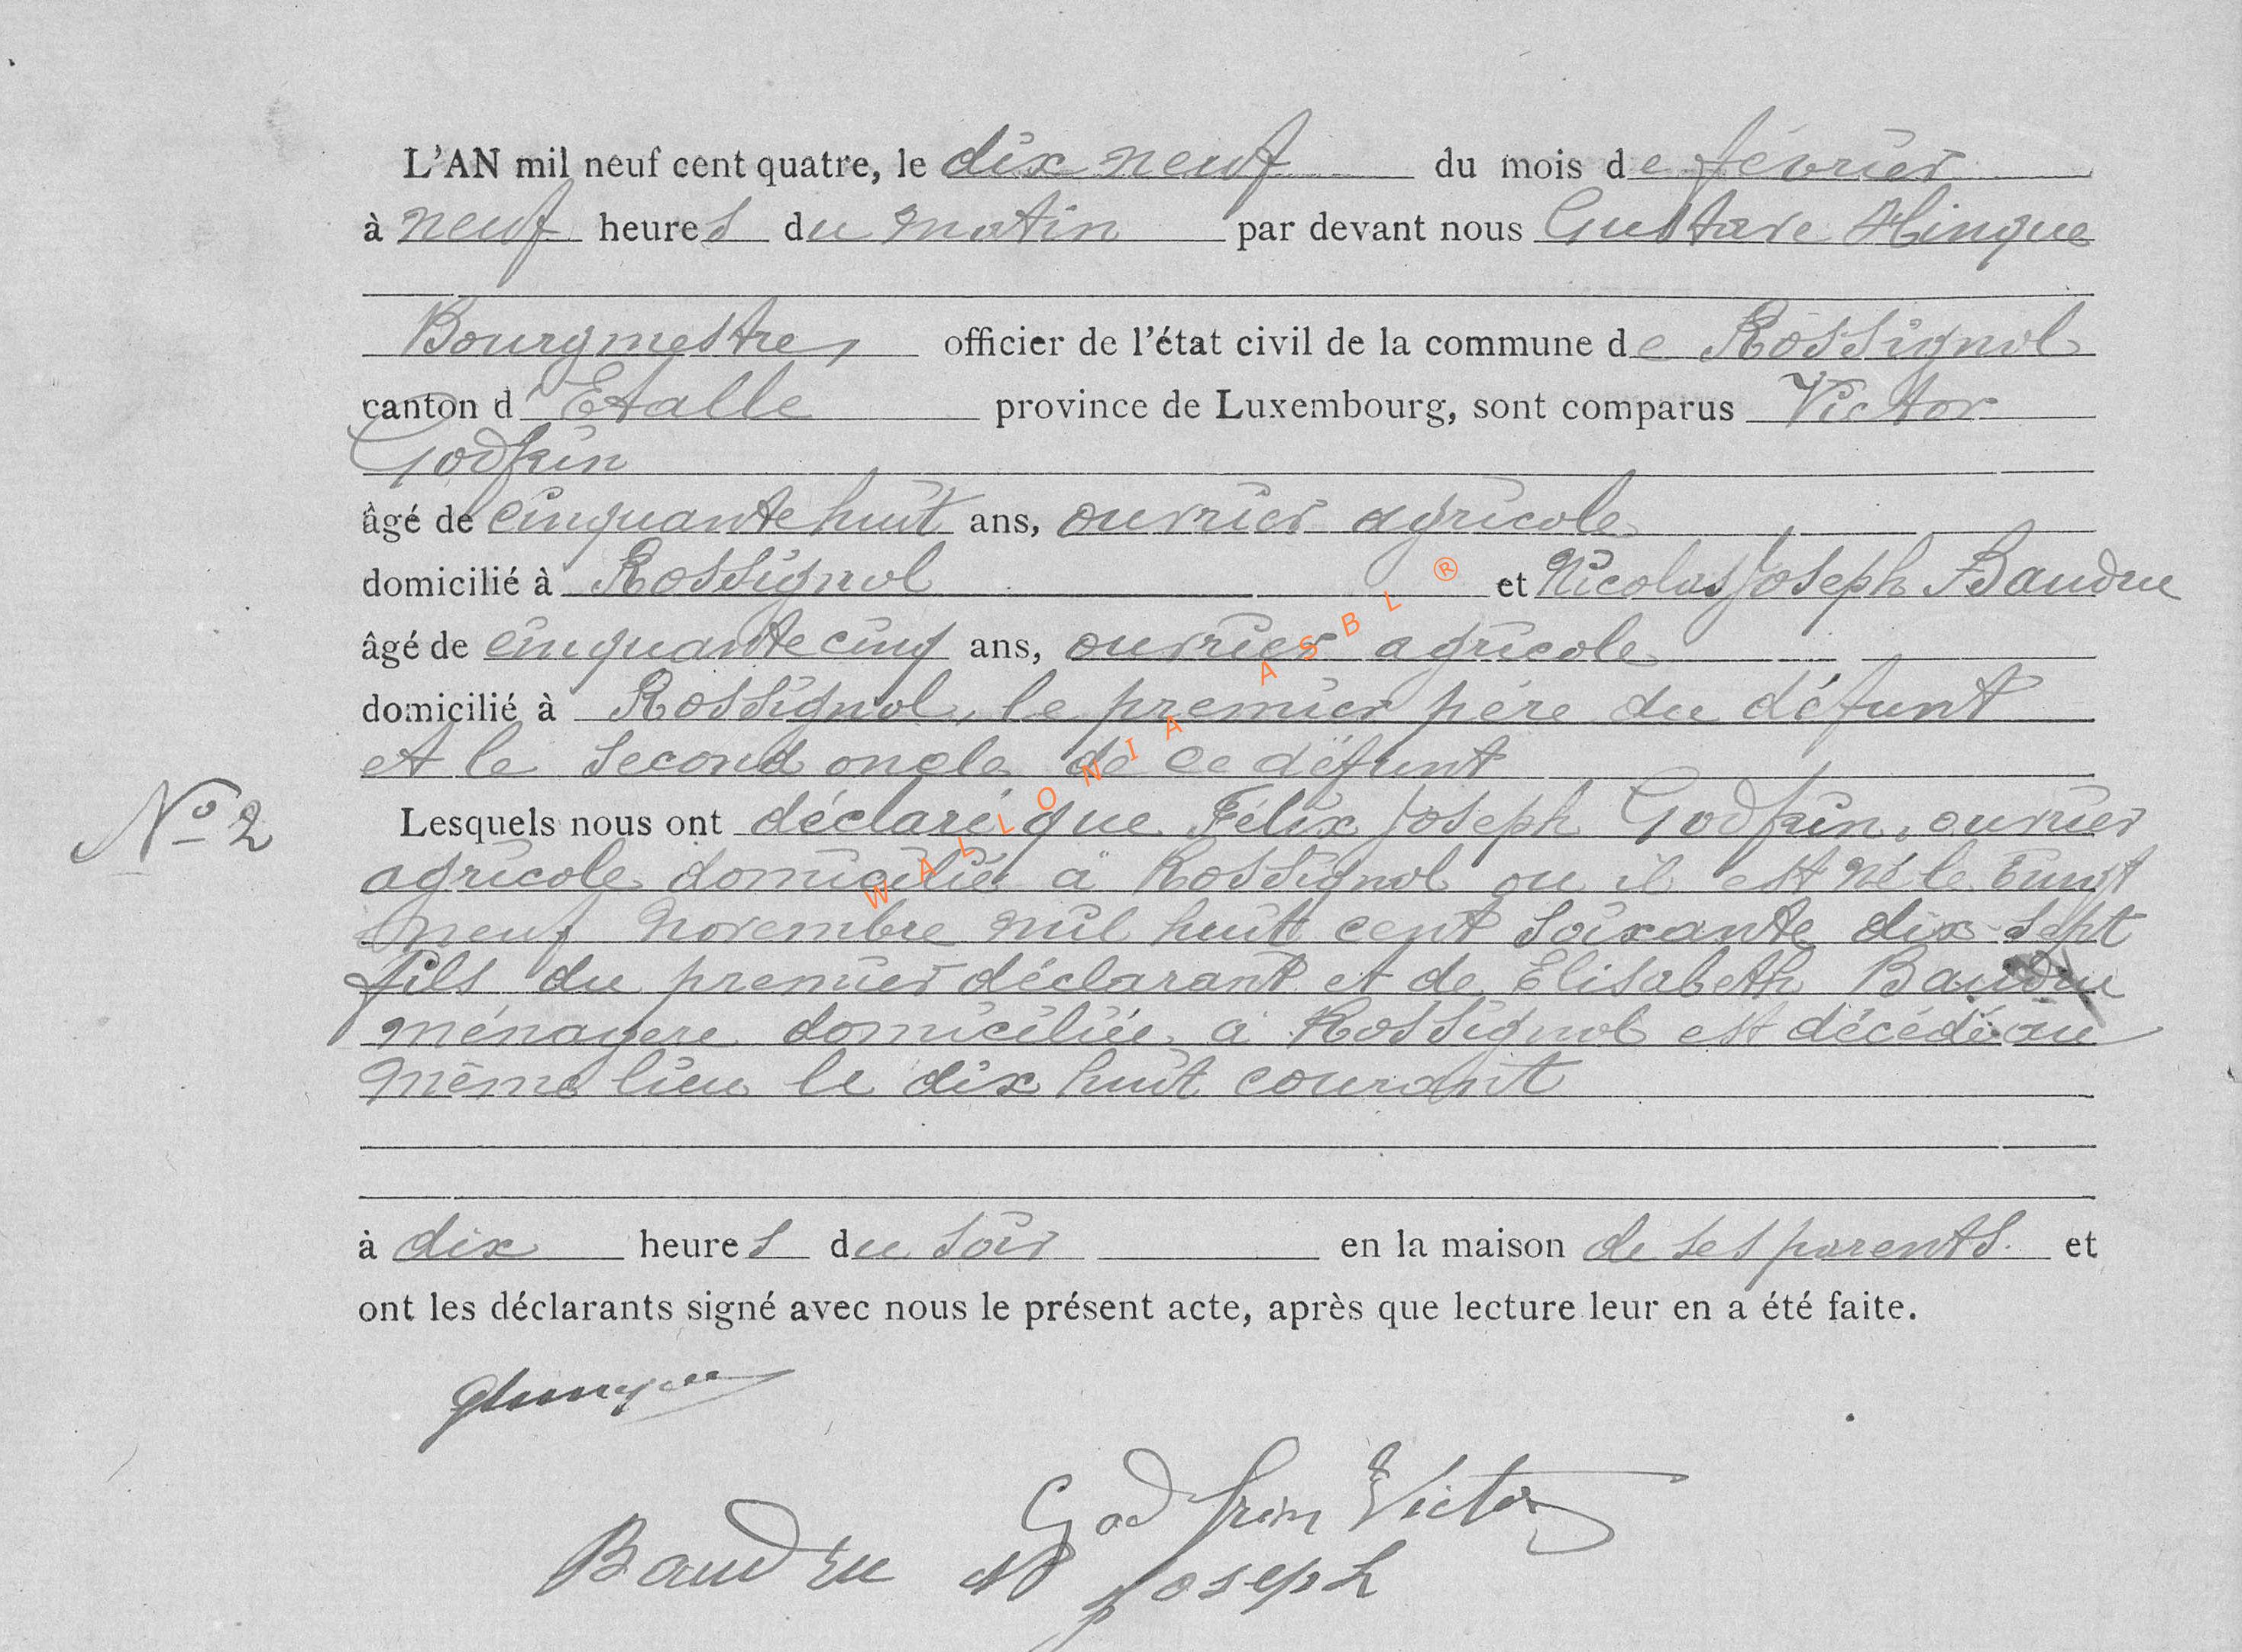 L'AN mil neuf cent quatre, le dix neuf du mois de février
à neuf heures du matin par devant nous Gustave Hinque
Bourgmestre, officier de l'état civil de la commune de Rossignol
canton d'Etalle province de Luxembourg, sont comparus Victor
Godfrin
âgé de cinquante huit ans, ouvrier agricole
domicilié à Rossignol et Nicolas Joseph Baudru
âgé de cinquante cinq ans, ouvrier agricole
domicilié à Rossignol, le premier père du défunt
et le second oncle de ce défunt
No 2
Lesquels nous ont déclaré que Félix Joseph Godfrin, ouvrier
agricole domicilié à Rossignol ou il est né le vingt
neuf novembre mil huit cent soixante dix sept
fils du premier déclarant et de Elisabeth Baudru
ménagere domiciliée à Rossignol est décédé au
même lieu le dix huit courant
à dix heures du soir en la maison de ses parents. et
ont les déclarants signé avec nous le présent acte, après que lecture leur en a été faite.
Godfrin Victor
Baudru N Joseph
WALLONIA ASBL ®